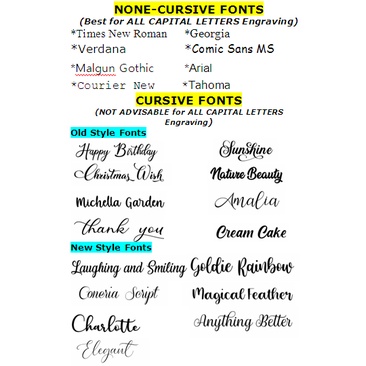 NONE-CURSIVE FONTS
(Best for ALL CAPITAL LETTERS Engraving)
*Times New Roman *Georgia
*Verdana *Comic Sans MS
*Malgun Gothic *Arial
*Courier New *Tahoma
CURSIVE FONTS
(NOT ADVISABLE for ALL CAPITAL LETTERS
Engraving)
Old Style Fonts
Happy Birthday Sunshine
Christmas Wish Nature Beauty
Michella Garden Amalia
thank you Cream Cake
New Style Fonts
Laughing and Smiling Goldie Rainbow
Coneria Script Magical Feather
Charlotte Anything Better
Elegant